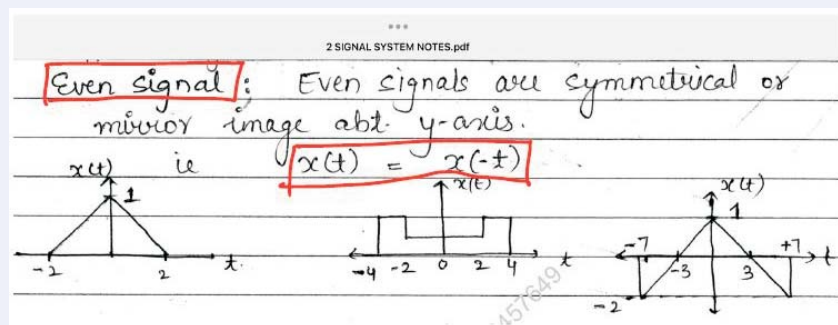 2 SIGNAL SYSTEM NOTES.pdf
Even signal : Even signals are symmetrical or
mirror image abt. y-axis.
ie x(t) = x(-t)
x(t) x(t) x(t)
1 1
-2 2 t. -4 -2 0 2 4 t -7 -3 3 +7 t
-2
457649